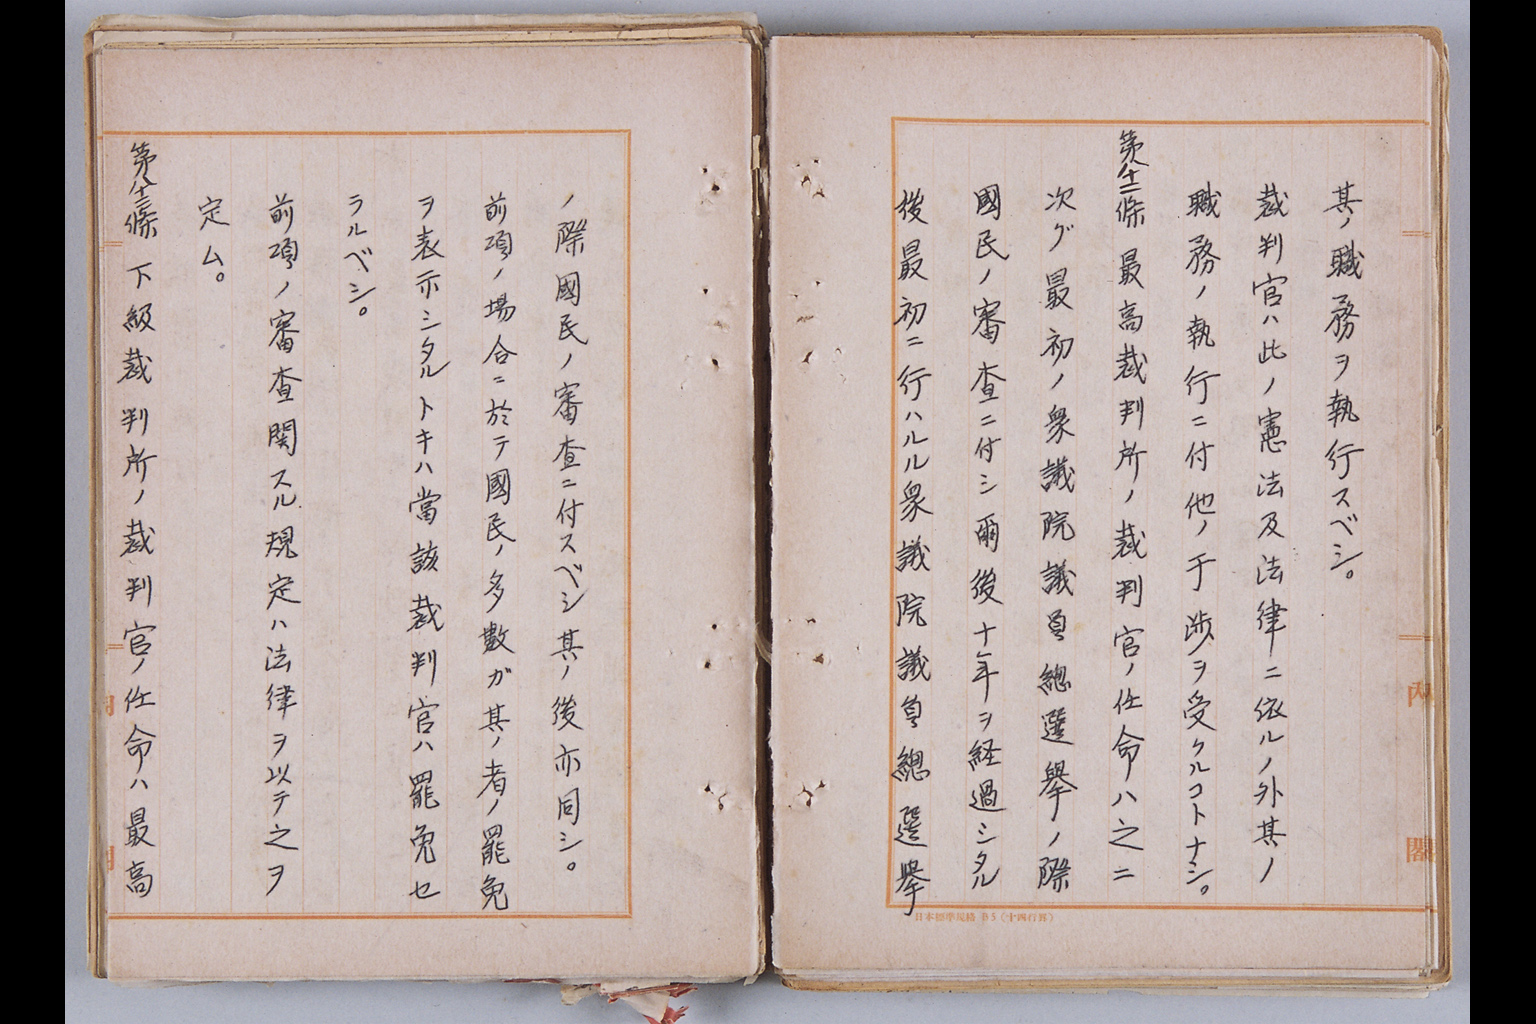 其ノ職務ヲ執行スベシ。
裁判官ハ此ノ憲法及法律ニ依ルノ外其ノ
職務ノ執行ニ付他ノ干渉ヲ受クルコトナシ。
第八十二條 最高裁判所ノ裁判官ノ任命ハ之ニ
次グ最初ノ衆議院議員總選擧ノ際
國民ノ審査ニ付シ爾後十年ヲ経過シタル
後最初ニ行ハルル衆議院議員總選擧
内閣
日本標準規格 B5(十四行界)
ノ際國民ノ審査ニ付スベシ其ノ後亦同シ。
前項ノ場合ニ於テ國民ノ多數ガ其ノ者ノ罷免
ヲ表示シタルトキハ當該裁判官ハ罷免セ
ラルベシ。
前項ノ審査関スル規定ハ法律ヲ以テ之ヲ
定ム。
第八十三條 下級裁判所ノ裁判官ノ任命ハ最高